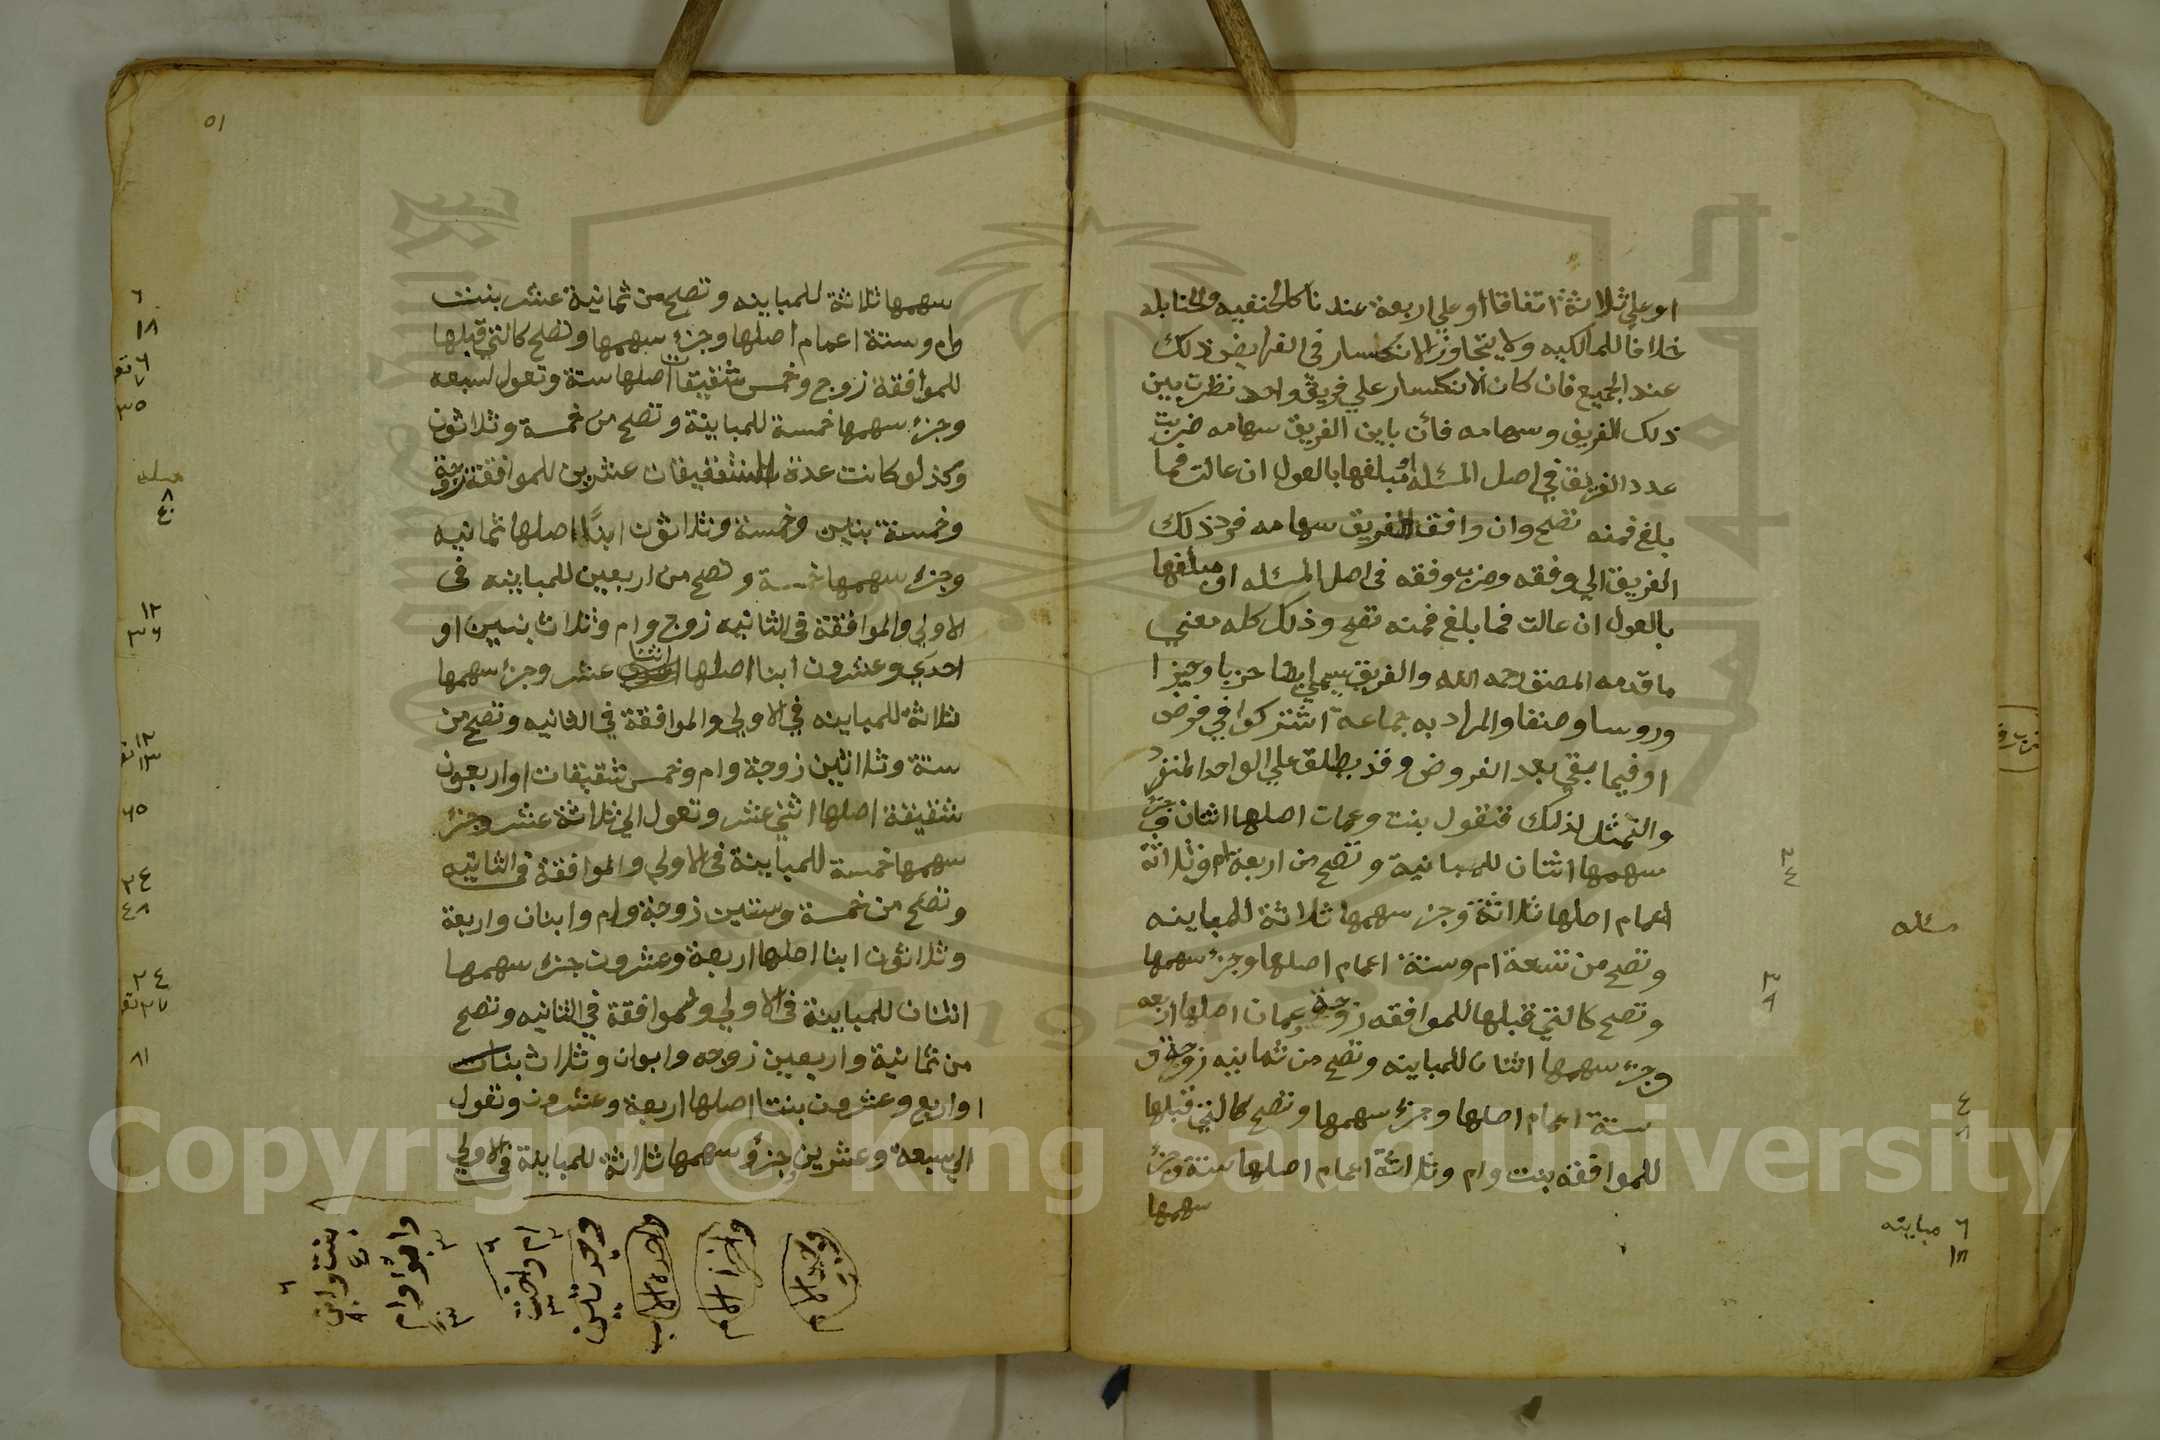 او علي ثلاثة اتفاقا او علي اربعة عندنا كالحنفيه والحنابله
خلافا للمالكيه ولا يتجاوز الانكسار في الفرايض ذلك
عند الجميع فان كان الانكسار علي فريق واحد نظرت بين
ذلك الفريق وسهامه فأن باين الفريق سهامه ضربت
عدد الفريق في اصل المسئله او مبلغها بالعول ان عالت فما
بلغ فمنه تصح وان وافق الفريق سهامه فرد ذلك
الفريق الي وفقه وضرب وفقه في اصل المسئله او مبلغها
بالعول ان عالت فما بلغ فمنه تصح وذلك كله معني
ما قدمه المصنف رحمه الله والفريق يسمي ايضا حزبا وحيزا
وروسا وصنفا والمراد به جماعة اشتركوا في فرض
او فيما بقي بعد الفروض وقد يطلق علي الواحد المنفرد
والنمثل لذلك فنقول بنت وعمات اصلها اثنان وجزء
سهمها اثنان للمبانية وتصح من اربعة ام وثلاثة
اعمام اصلها ثلاثة وجزء سهمها ثلاثة للمباينه
وتصح من تسعة ام وستة اعمام اصلها وجزء سهمها
وتصح كالتي قبلها للموافقه زوجة وعمان اصلها اربعه
وجزء سهمها اثنان للمباينه وتصح من ثمانيه زوجة و
ستة اعمام اصلها وجزء سهمها وتصح كالتي قبلها
للموافقه بنت وام وثلاثة اعمام اصلها ستة وجزء
سهمها
مسئله
٣
٩
٤
٨
٦ مباينه
١٨
٥١
سهمها ثلاثة للمباينه وتصح من ثمانية عشر بنت
وام وستة اعمام اصلها وجزء سهمها وتصح كالتي قبلها
للموافقة زوج وخمس شقيقات اصلها ستة وتعول لسبعه
وجزء سهمها خمسة للمباينة وتصح من خمسة وثلاثون
وكذلو كانت عدة الشقيقات عشرين للموافقة زوجة
وخمسة بنين وخمسة وثلاثون ابنًا اصلها ثمانيه
وجزء سهمها خمسة وتصح من اربعين للمباينه في
الاولي والموافقة في الثانيه زوج وام وثلاث بنين او
احدي وعشرون ابنا اصلها اثنا عشر وجزء سهمها
ثلاثة للمباينه في الاولي والموافقة في الثانيه وتصح من
ستة وثلاثين زوجة وام وخمس شقيقات او اربعون
شقيقة اصلها اثني عشر وتعول الي ثلاثة عشر وجزء
سهمها خمسة للمباينة في الاولي والموافقة في الثانيه
وتصح من خمسة وستين زوجة وام وابنان واربعة
وثلاثون ابنا اصلها اربعة وعشرون جزء سهمها
اثنان للمباينة في الاولي وللموافقة في الثانيه وتصح
من ثمانية واربعين زوجه وابوان وثلاث بنات
او اربع وعشرون بنتا اصلها اربعة وعشرون وتعول
الي سبعة وعشرين وجزؤ سهمها ثلاثة للمباينة في الاولي
٦
١٨
٣٥
٨
٤٠
١٢
٣٦
١٢
٦٥
٢٤
٤٨
٢٤
٨١
Copyright © King Saud University
1957